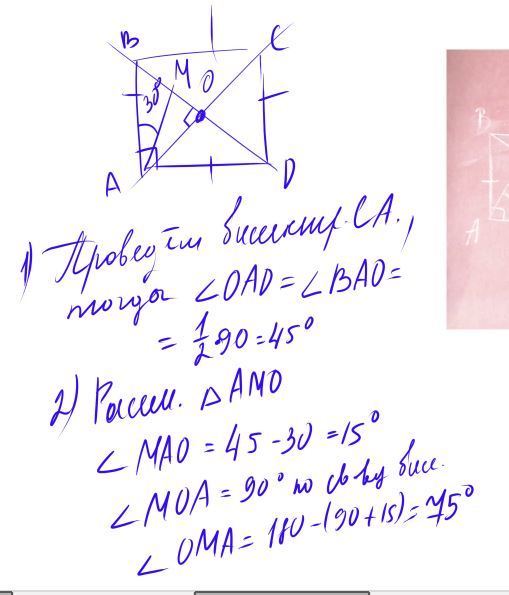 B
C
M
O
30°
A
D
1) Проведём биссектр. CA.,
тогда ∠OAD = ∠BAO =
= 1/2 90 = 45°
2) Рассм. △AMO
∠MAO = 45 - 30 = 15°
∠MOA = 90° по св-ву бисс.
∠OMA = 180 - (90 + 15) = 75°
B
A